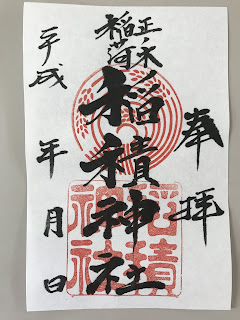 奉拝
正木
稲荷
稲積神社
平成 年 月 日
稲積
神社